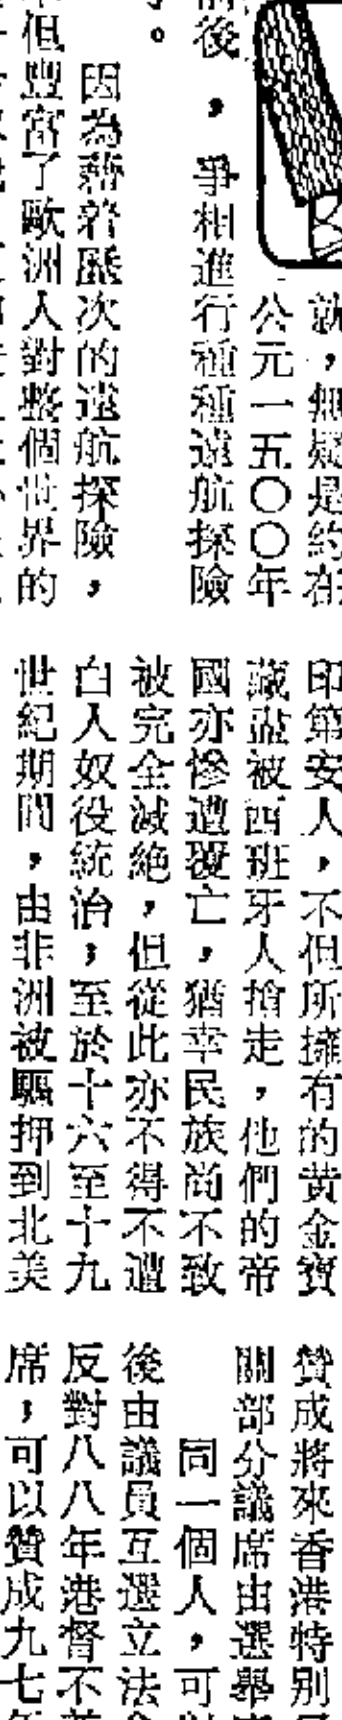 就，無疑是約在
公元一五〇〇年
前後，爭相進行種種遠航探險
。
因為藉着歷次的遠航探險，
但豐富了歐洲人對整個世界的
印第安人，不但所擁有的黄金寶
藏盡被西班牙人搶走，他們的帝
國亦慘遭覆亡，猶幸民族尚不致
被完全滅絕，但從此亦不得不遭
白人奴役統治；至於十六至十九
世紀期間，由非洲被驅押到北美
贊成將來香港特別
關部分議席由選舉
同一個人，可
後由議員互選立法
反對八八年港督不
席，可以贊成九七年